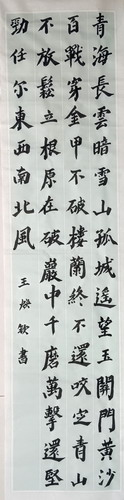 青海長雲暗雪山孤城遙望玉關門黃沙
百戰穿金甲不破樓蘭終不還咬定青山
不放鬆立根原在破巖中千磨萬擊還堅
勁任尔東西南北風
王 書